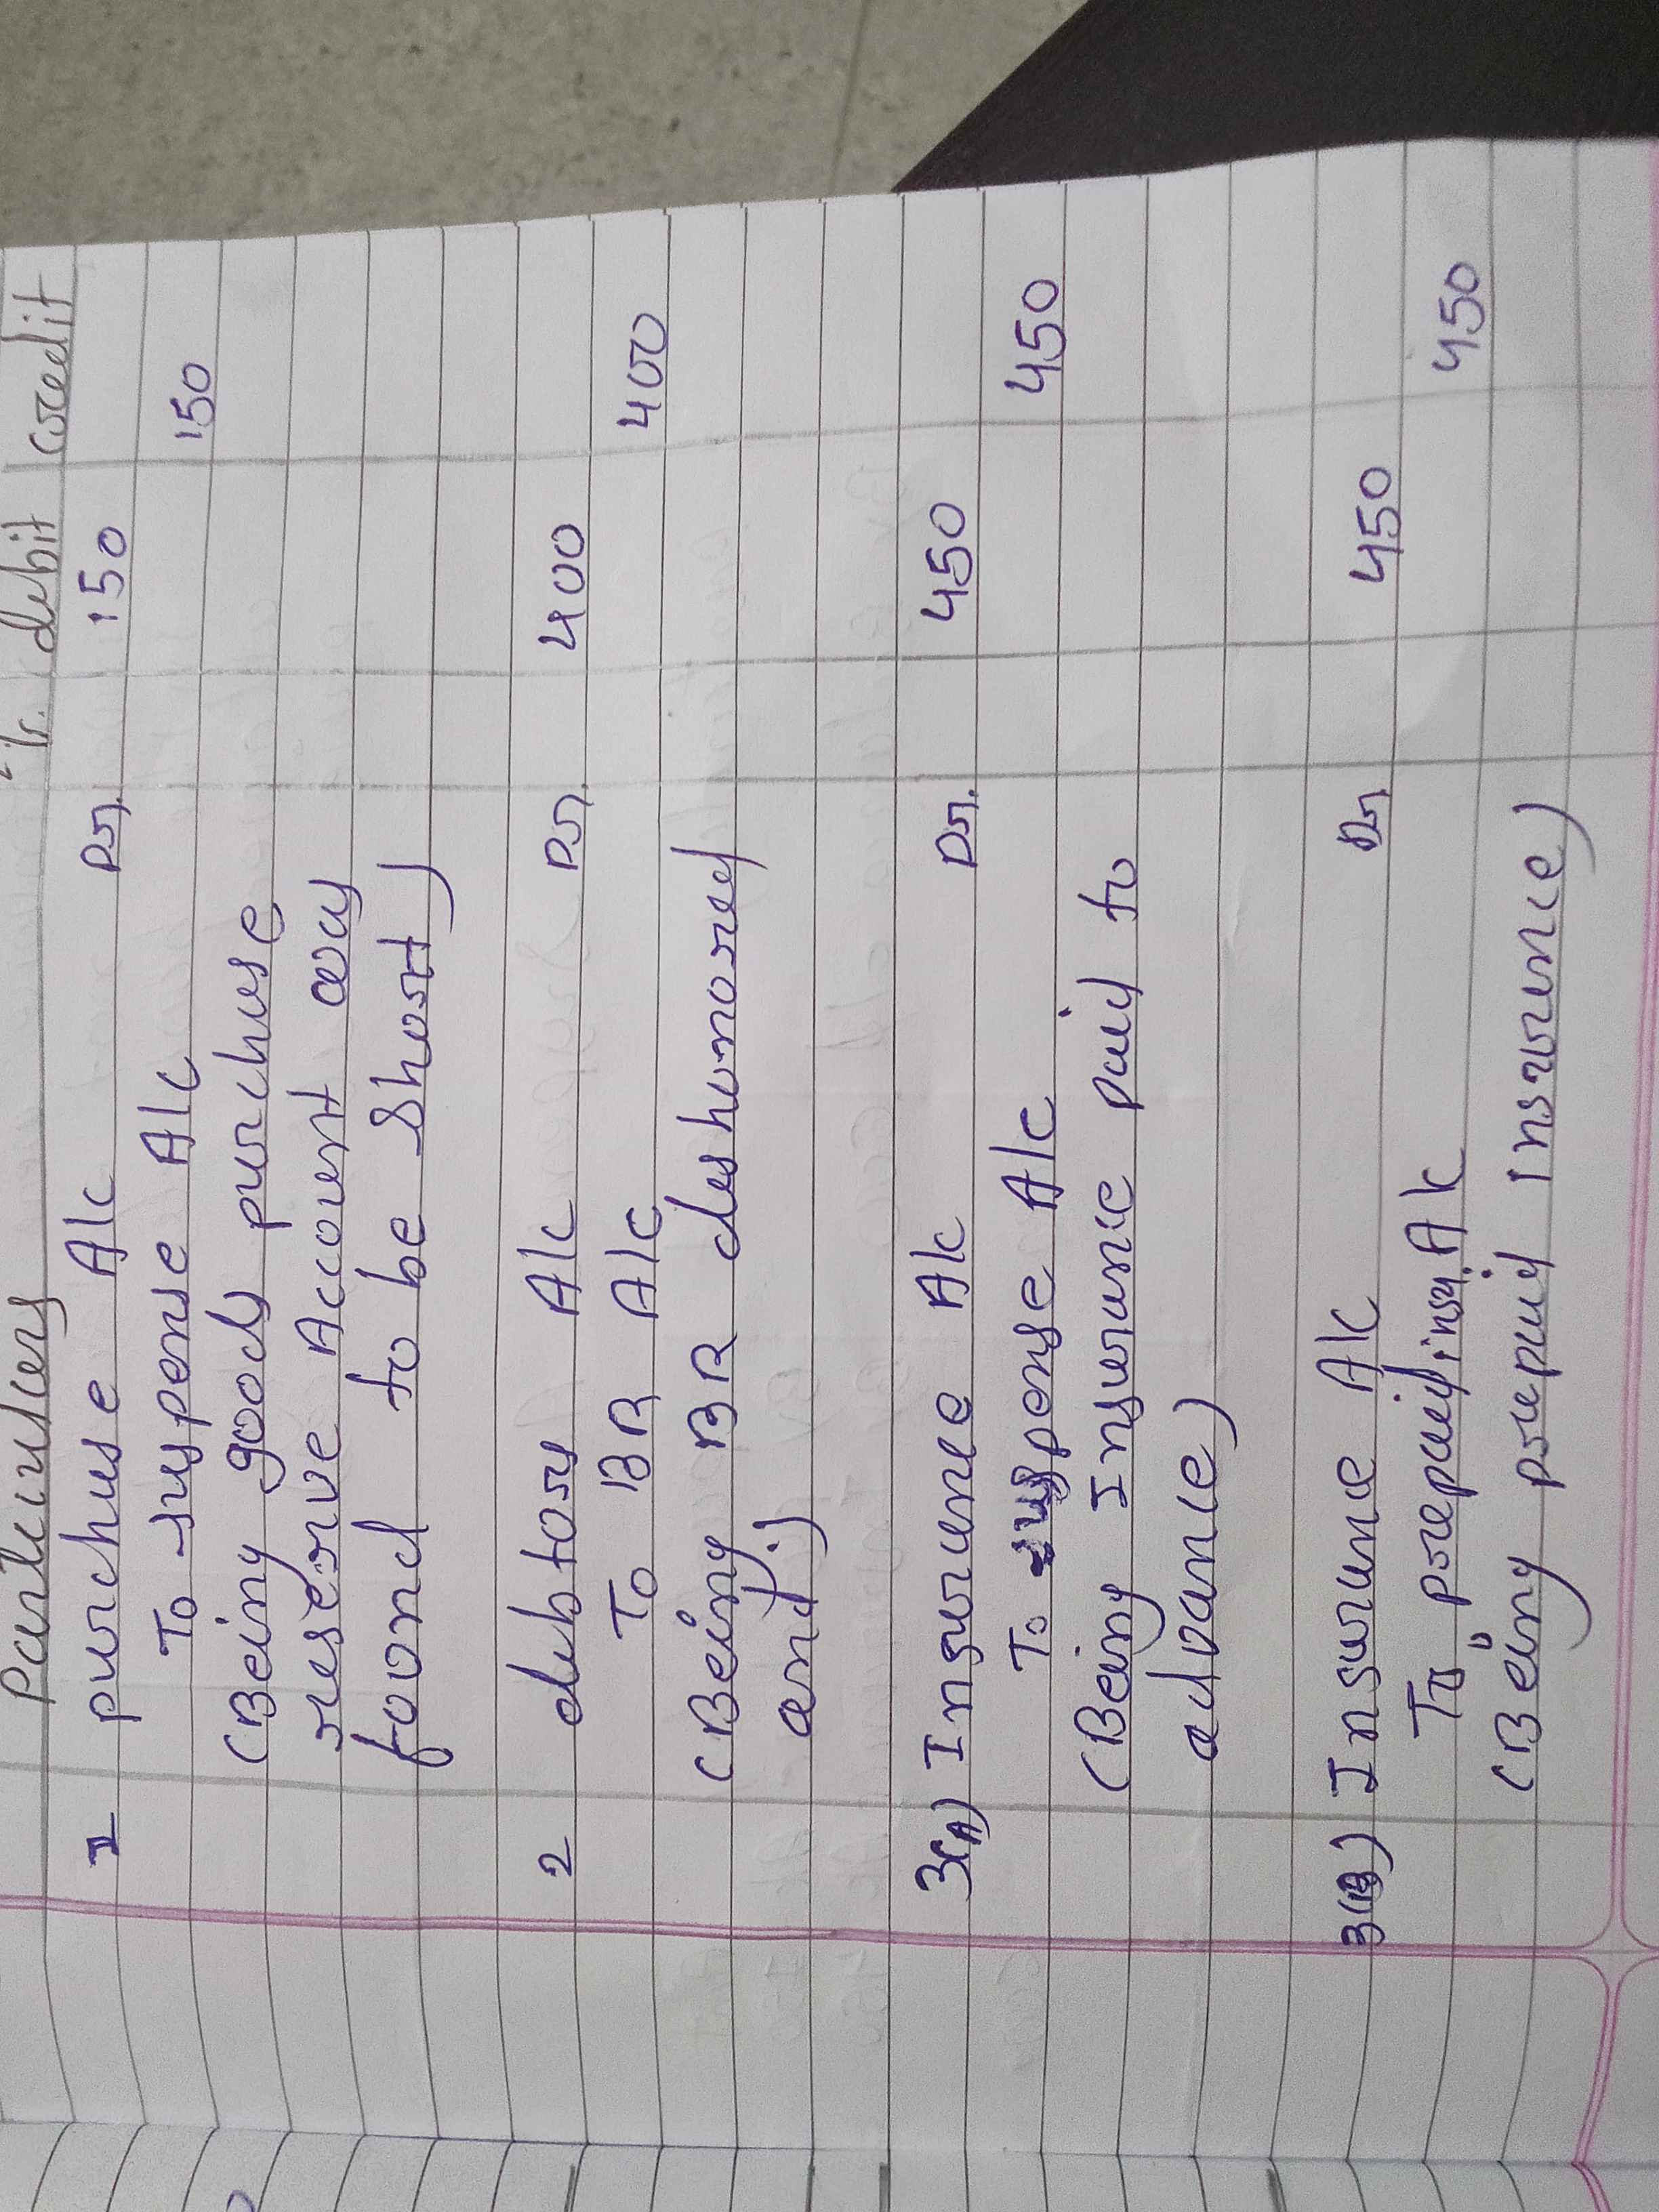 Particulars debit credit
1 purchase A/c Dr. 150
To suspense A/c 150
(Being goods purchase
reserve Account ocuy
foond to be short)
2 debtors A/c Dr. 400
To BR A/c 400
(Being BR deshonored
and.)
3(A) Insurance A/c Dr. 450
To suspense A/c 450
(Being Insurance paid to
advance)
3(B) Insurance A/c Dr. 450
To prepaid insu. A/c 450
(Being prepaid Insurance)